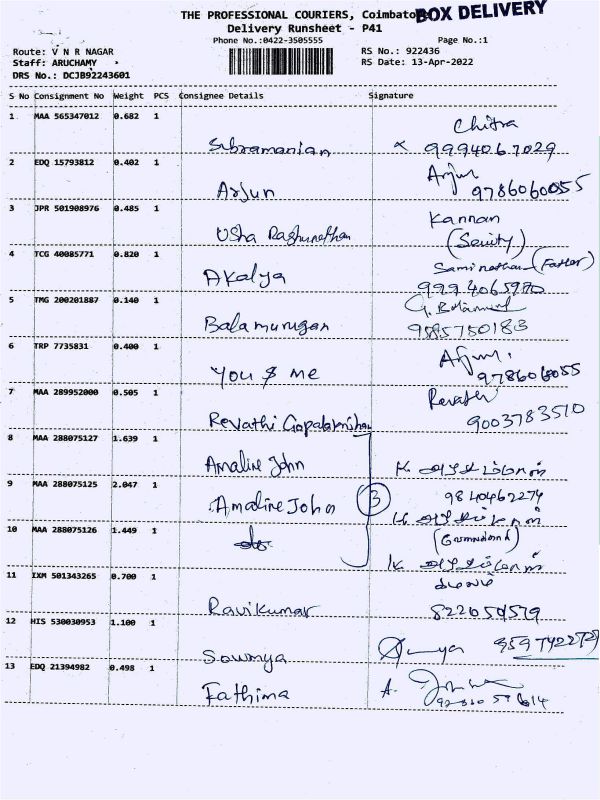 THE PROFESSIONAL COURIERS, Coimbatore
BOX DELIVERY
Delivery Runsheet - P41
Phone No.:0422-3505555
Page No.:1
Route: V N R NAGAR
RS No.: 922436
Staff: ARUCHAMY
RS Date: 13-Apr-2022
DRS No.: DCJB92243601
S No Consignment No Weight PCS Consignee Details Signature
1 MAA 565347012 0.682 1
Chitra
Subramanian
x 9994067029
2 EDQ 15793812 0.402 1
Arjun
Arjun
9786060055
3 JPR 501908976 0.485 1
Kannan
Usha Raghunathan
4 TCG 40085771 0.820 1
Saminathan (Father)
Akalya
9994065970
5 TMG 200201887 0.140 1
Balamurugan
9585750183
6 TRP 7735831 0.400 1
Arjun.
You & me
9786060055
7 MAA 289952000 0.505 1
Revathi
Revathi Gopalakrishnan
9003783510
8 MAA 288075127 1.639 1
Amaline John
K.
9 MAA 288075125 2.047 1
9840462274
Amaline John
3
K.
10 MAA 288075126 1.449 1
K.
11 IXM 501343265 0.700 1
Ravikumar
12 HIS 530030953 1.100 1
Sowmya
13 EDQ 21394982 0.498 1
Fathima
A.